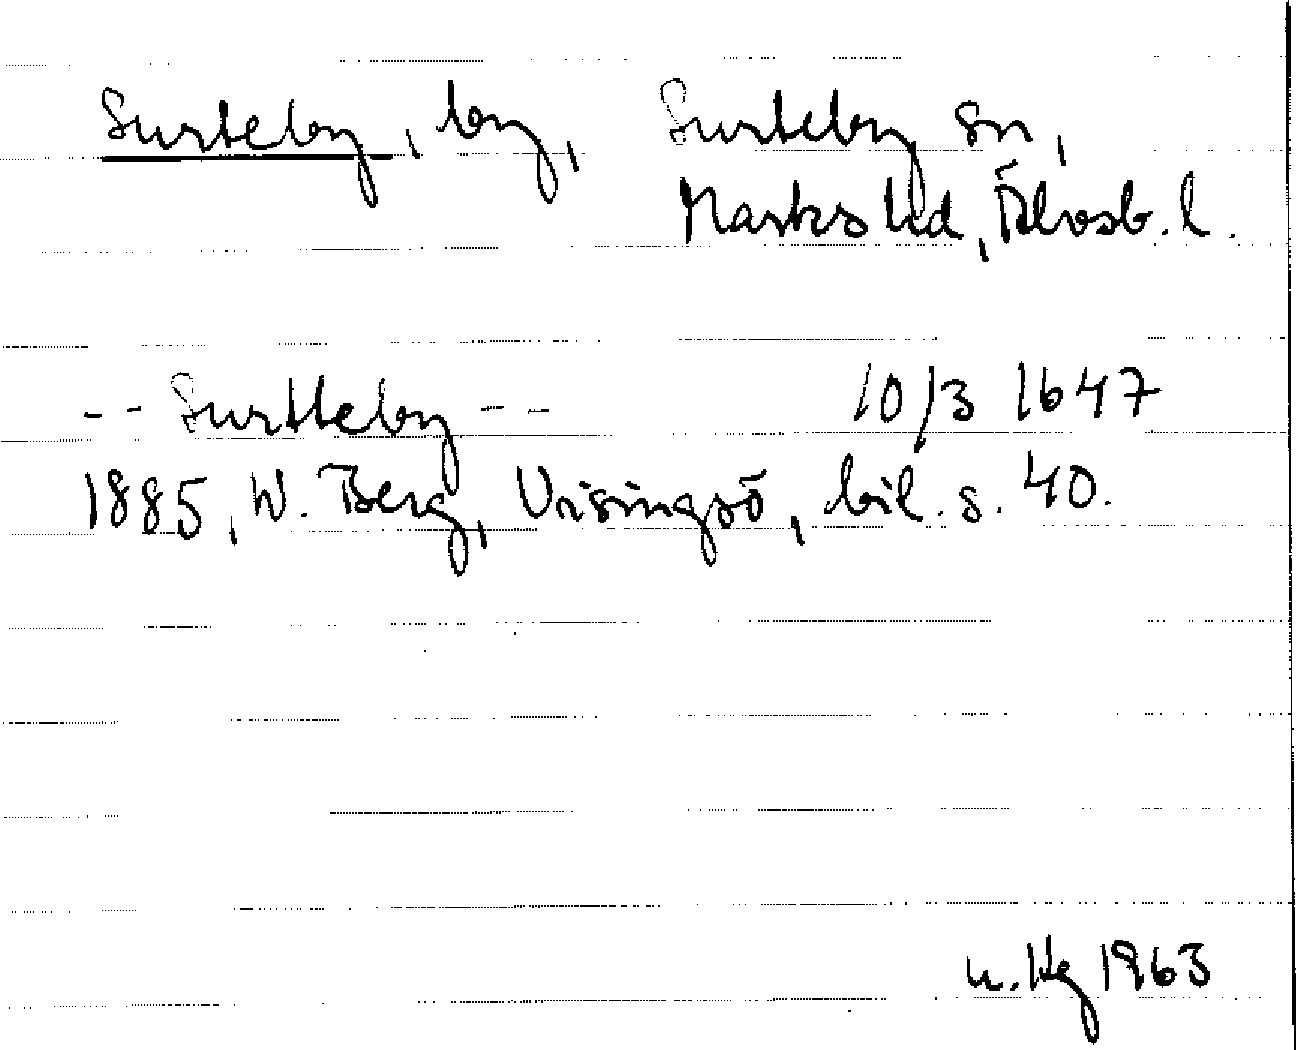 Surteby, by, Surteby sn,
Marks hd, Älvsb. l.
-- Surtteby -- 10/3 1647
1885, W. Berg, Visingsö, bil. s. 40.
1963